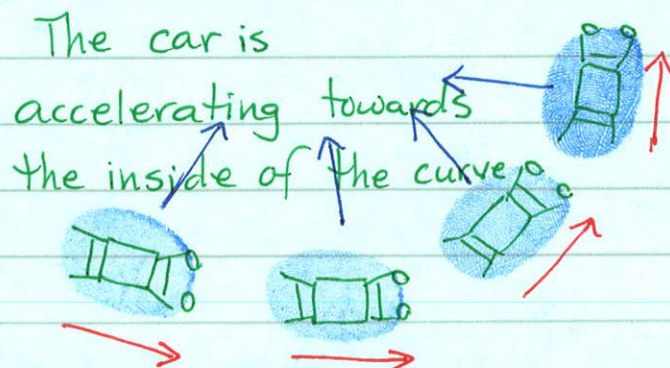 The car is
accelerating towards
the inside of the curve